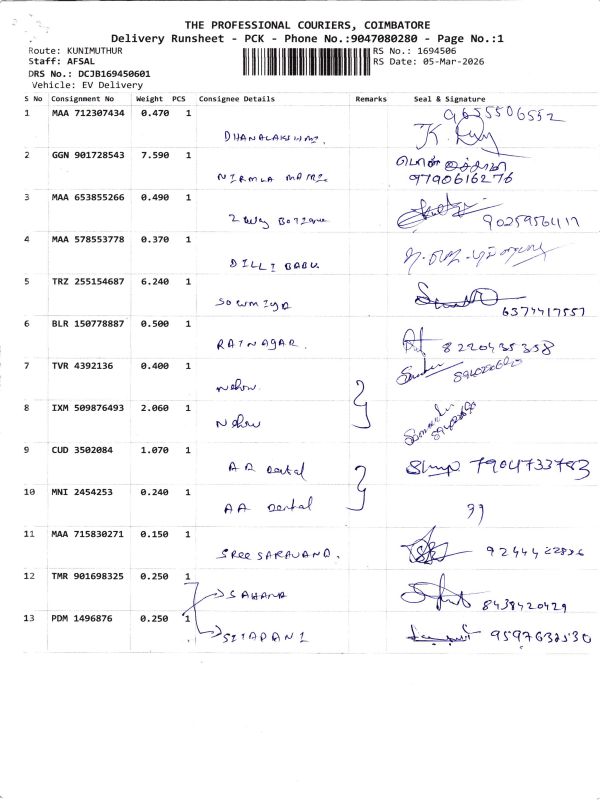 THE PROFESSIONAL COURIERS, COIMBATORE
Delivery Runsheet - PCK - Phone No.:9047080280 - Page No.:1
Route: KUNIMUTHUR RS No.: 1694506
Staff: AFSAL RS Date: 05-Mar-2026
DRS No.: DCJB169450601
Vehicle: EV Delivery
S No Consignment No Weight PCS Consignee Details Remarks Seal & Signature
1 MAA 712307434 0.470 1 9655506552
DHANALAKSHMI.
2 GGN 901728543 7.590 1
NIRMLA MAMI. 9790616276
3 MAA 653855266 0.490 1
2 Way 9025956417
4 MAA 578553778 0.370 1
DILLI BABU.
5 TRZ 255154687 6.240 1
SOWMIYA 6377417557
6 BLR 150778887 0.500 1
RAJNAGAR. 8220435358
7 TVR 4392136 0.400 1
Nehru.
8 IXM 509876493 2.060 1
Nehru
9 CUD 3502084 1.070 1
AA Dental 7904733783
10 MNI 2454253 0.240 1
AA Dental "
11 MAA 715830271 0.150 1
SREE SARAVANA. 9244422836
12 TMR 901698325 0.250 1
SAHANA 8438420429
13 PDM 1496876 0.250 1
SITARANI 9597632530